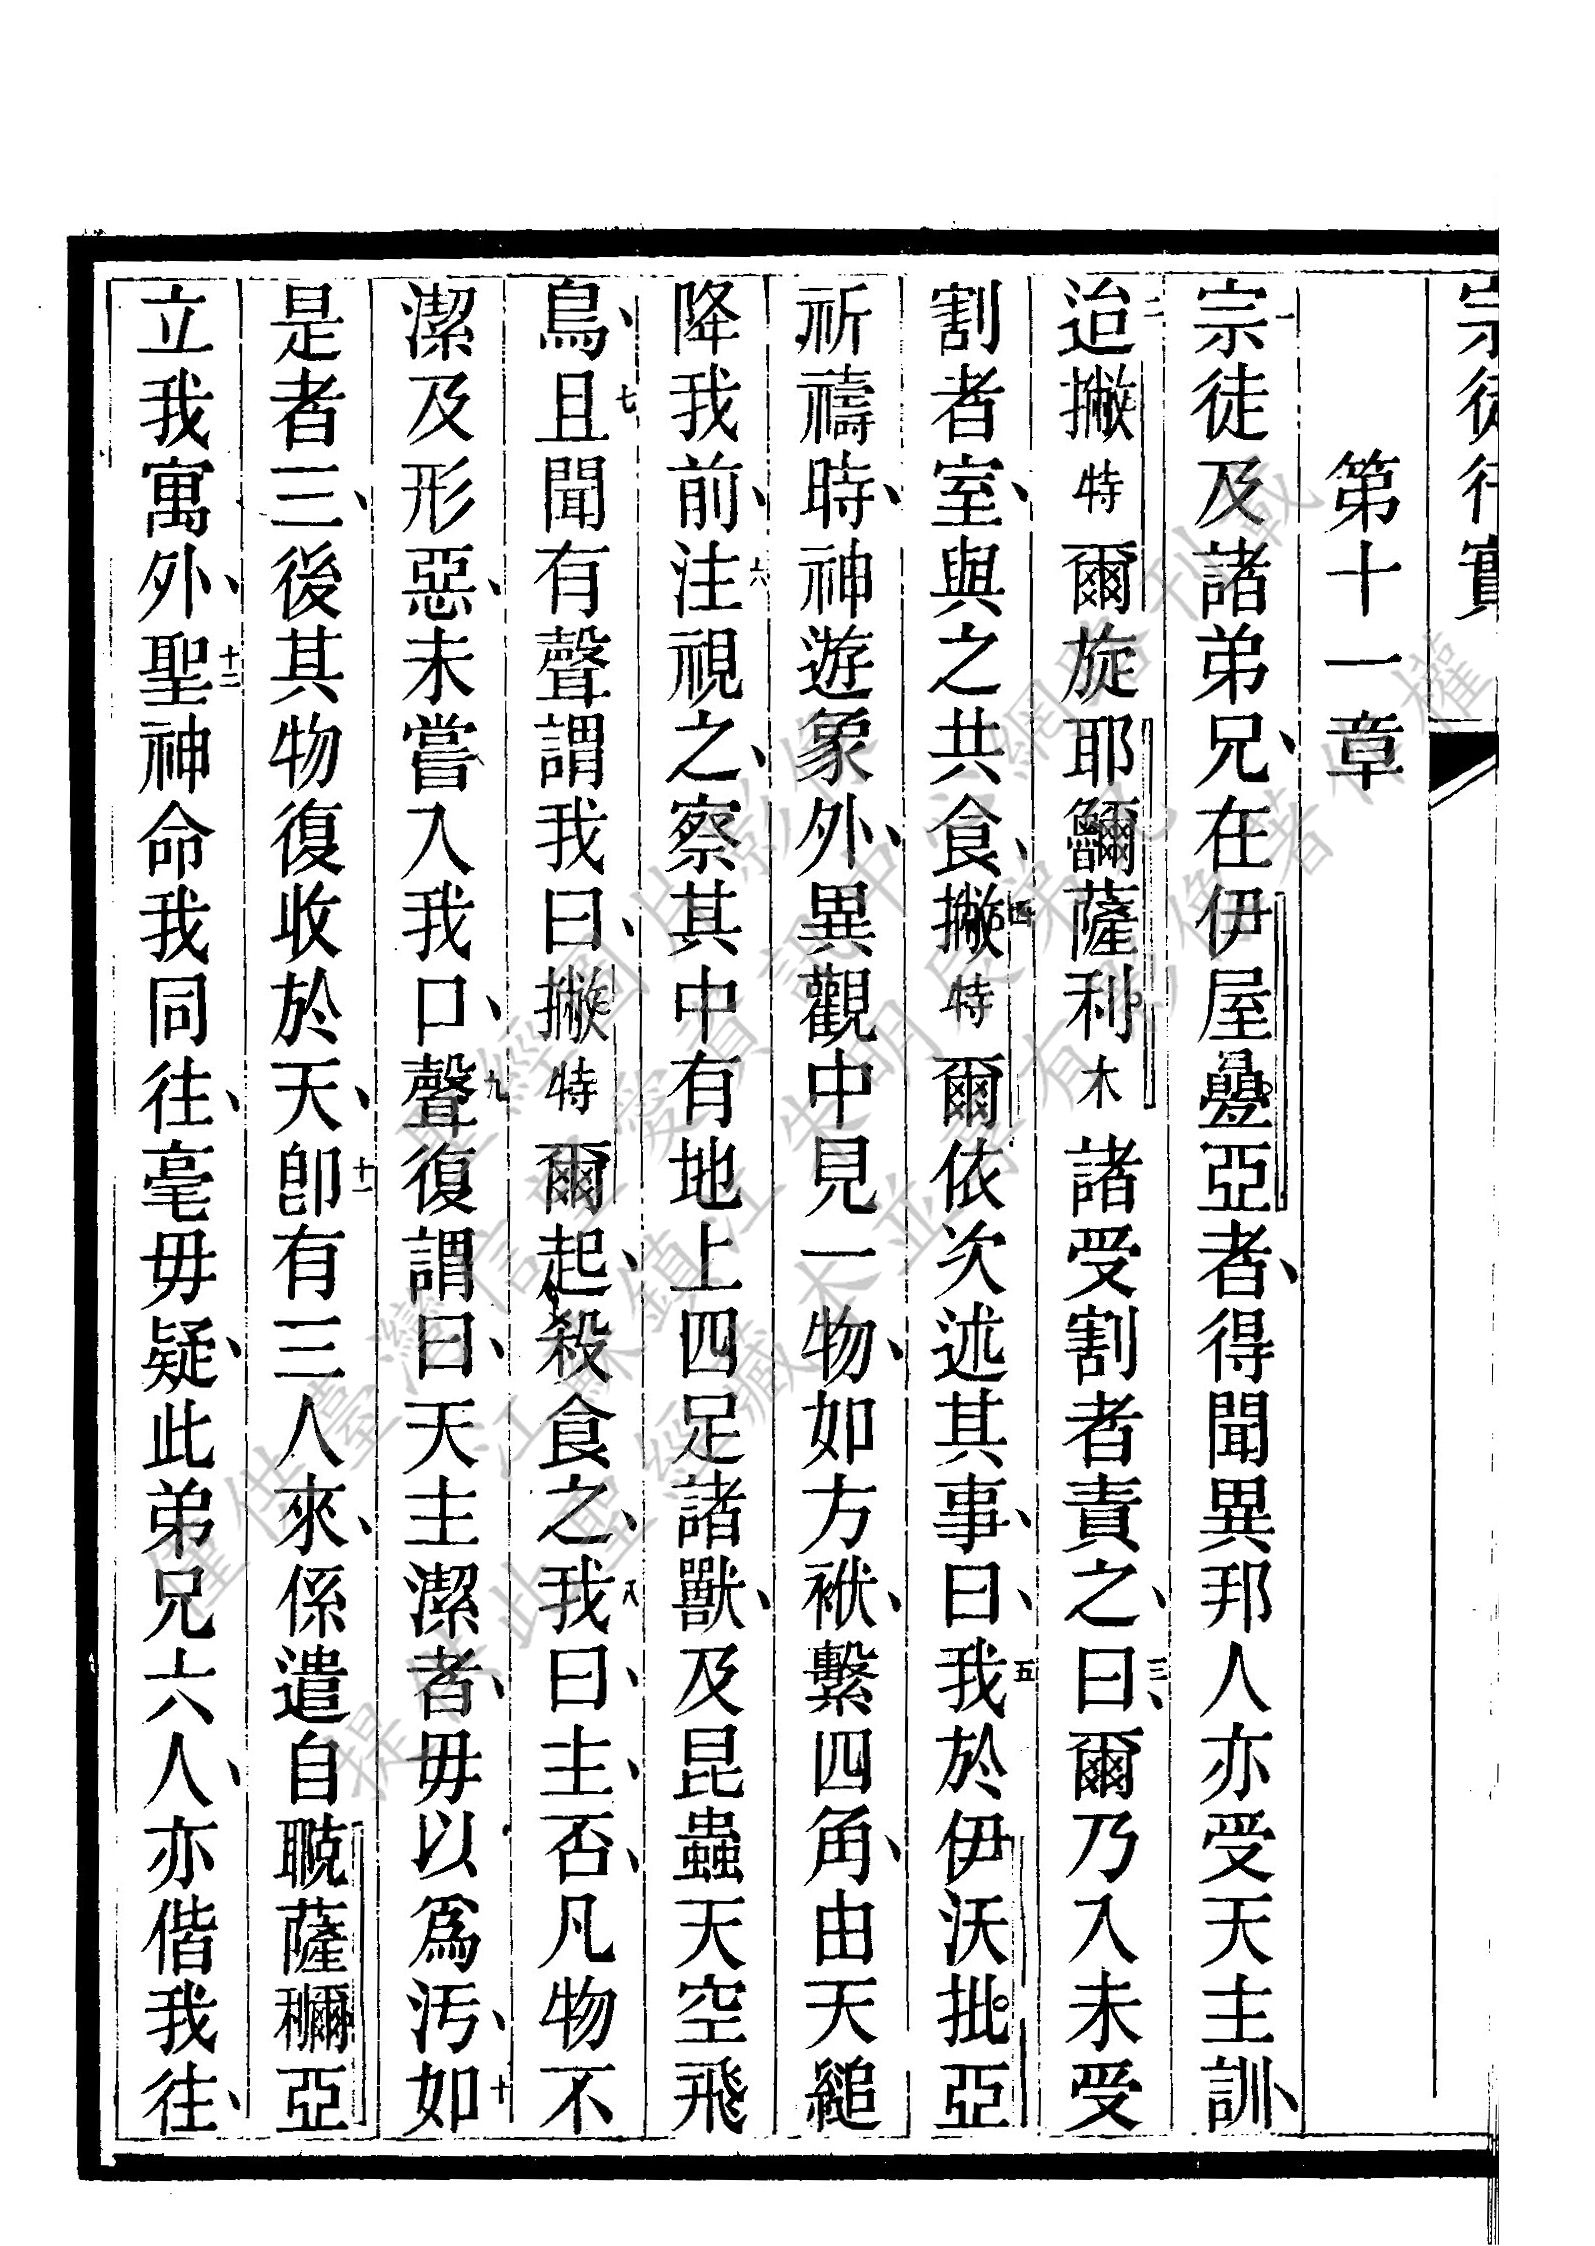 宗徒行實
第十一章
一宗徒及諸弟兄、在伊屋疊亞者、得聞異邦人亦受天主訓、
二迨撇特爾旋耶⿰魯爾薩利木諸受割者責之、三曰、爾乃入未受
割者室、與之共食、四撇特爾依次述其事、曰、五我於伊沃批亞
祈禱時、神遊象外、異觀中見一物、如方袱、繫四角、由天縋
降我前、六注視之、察其中有地上四足諸獸、及昆蟲天空飛
鳥、七且聞有聲謂我曰、撇特爾起、殺食之、八我曰、主、否、凡物不
潔及形惡、未嘗入我口、九聲復謂曰、天主潔者、毋以爲污、十如
是者三、後其物復收於天、十一卽有三人來、係遣自⿰耶克薩⿰利爾亞
立我寓外、十二聖神命我同往、毫毋疑、此弟兄六人、亦偕我往、